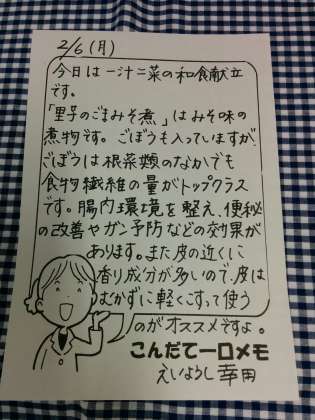 2/6(月)
今日は一汁二菜の和食献立
です。
「里芋のごまみそ煮」はみそ味の
煮物です。ごぼうも入っていますが、
ごぼうは根菜類のなかでも
食物繊維の量がトップクラス
です。腸内環境を整え、便秘
の改善やガン予防などの効果が
あります。また皮の近くに
香り成分が多いので、皮は
むかずに軽くこすって使う
のがオススメですよ。
こんだて一口メモ
えいようし